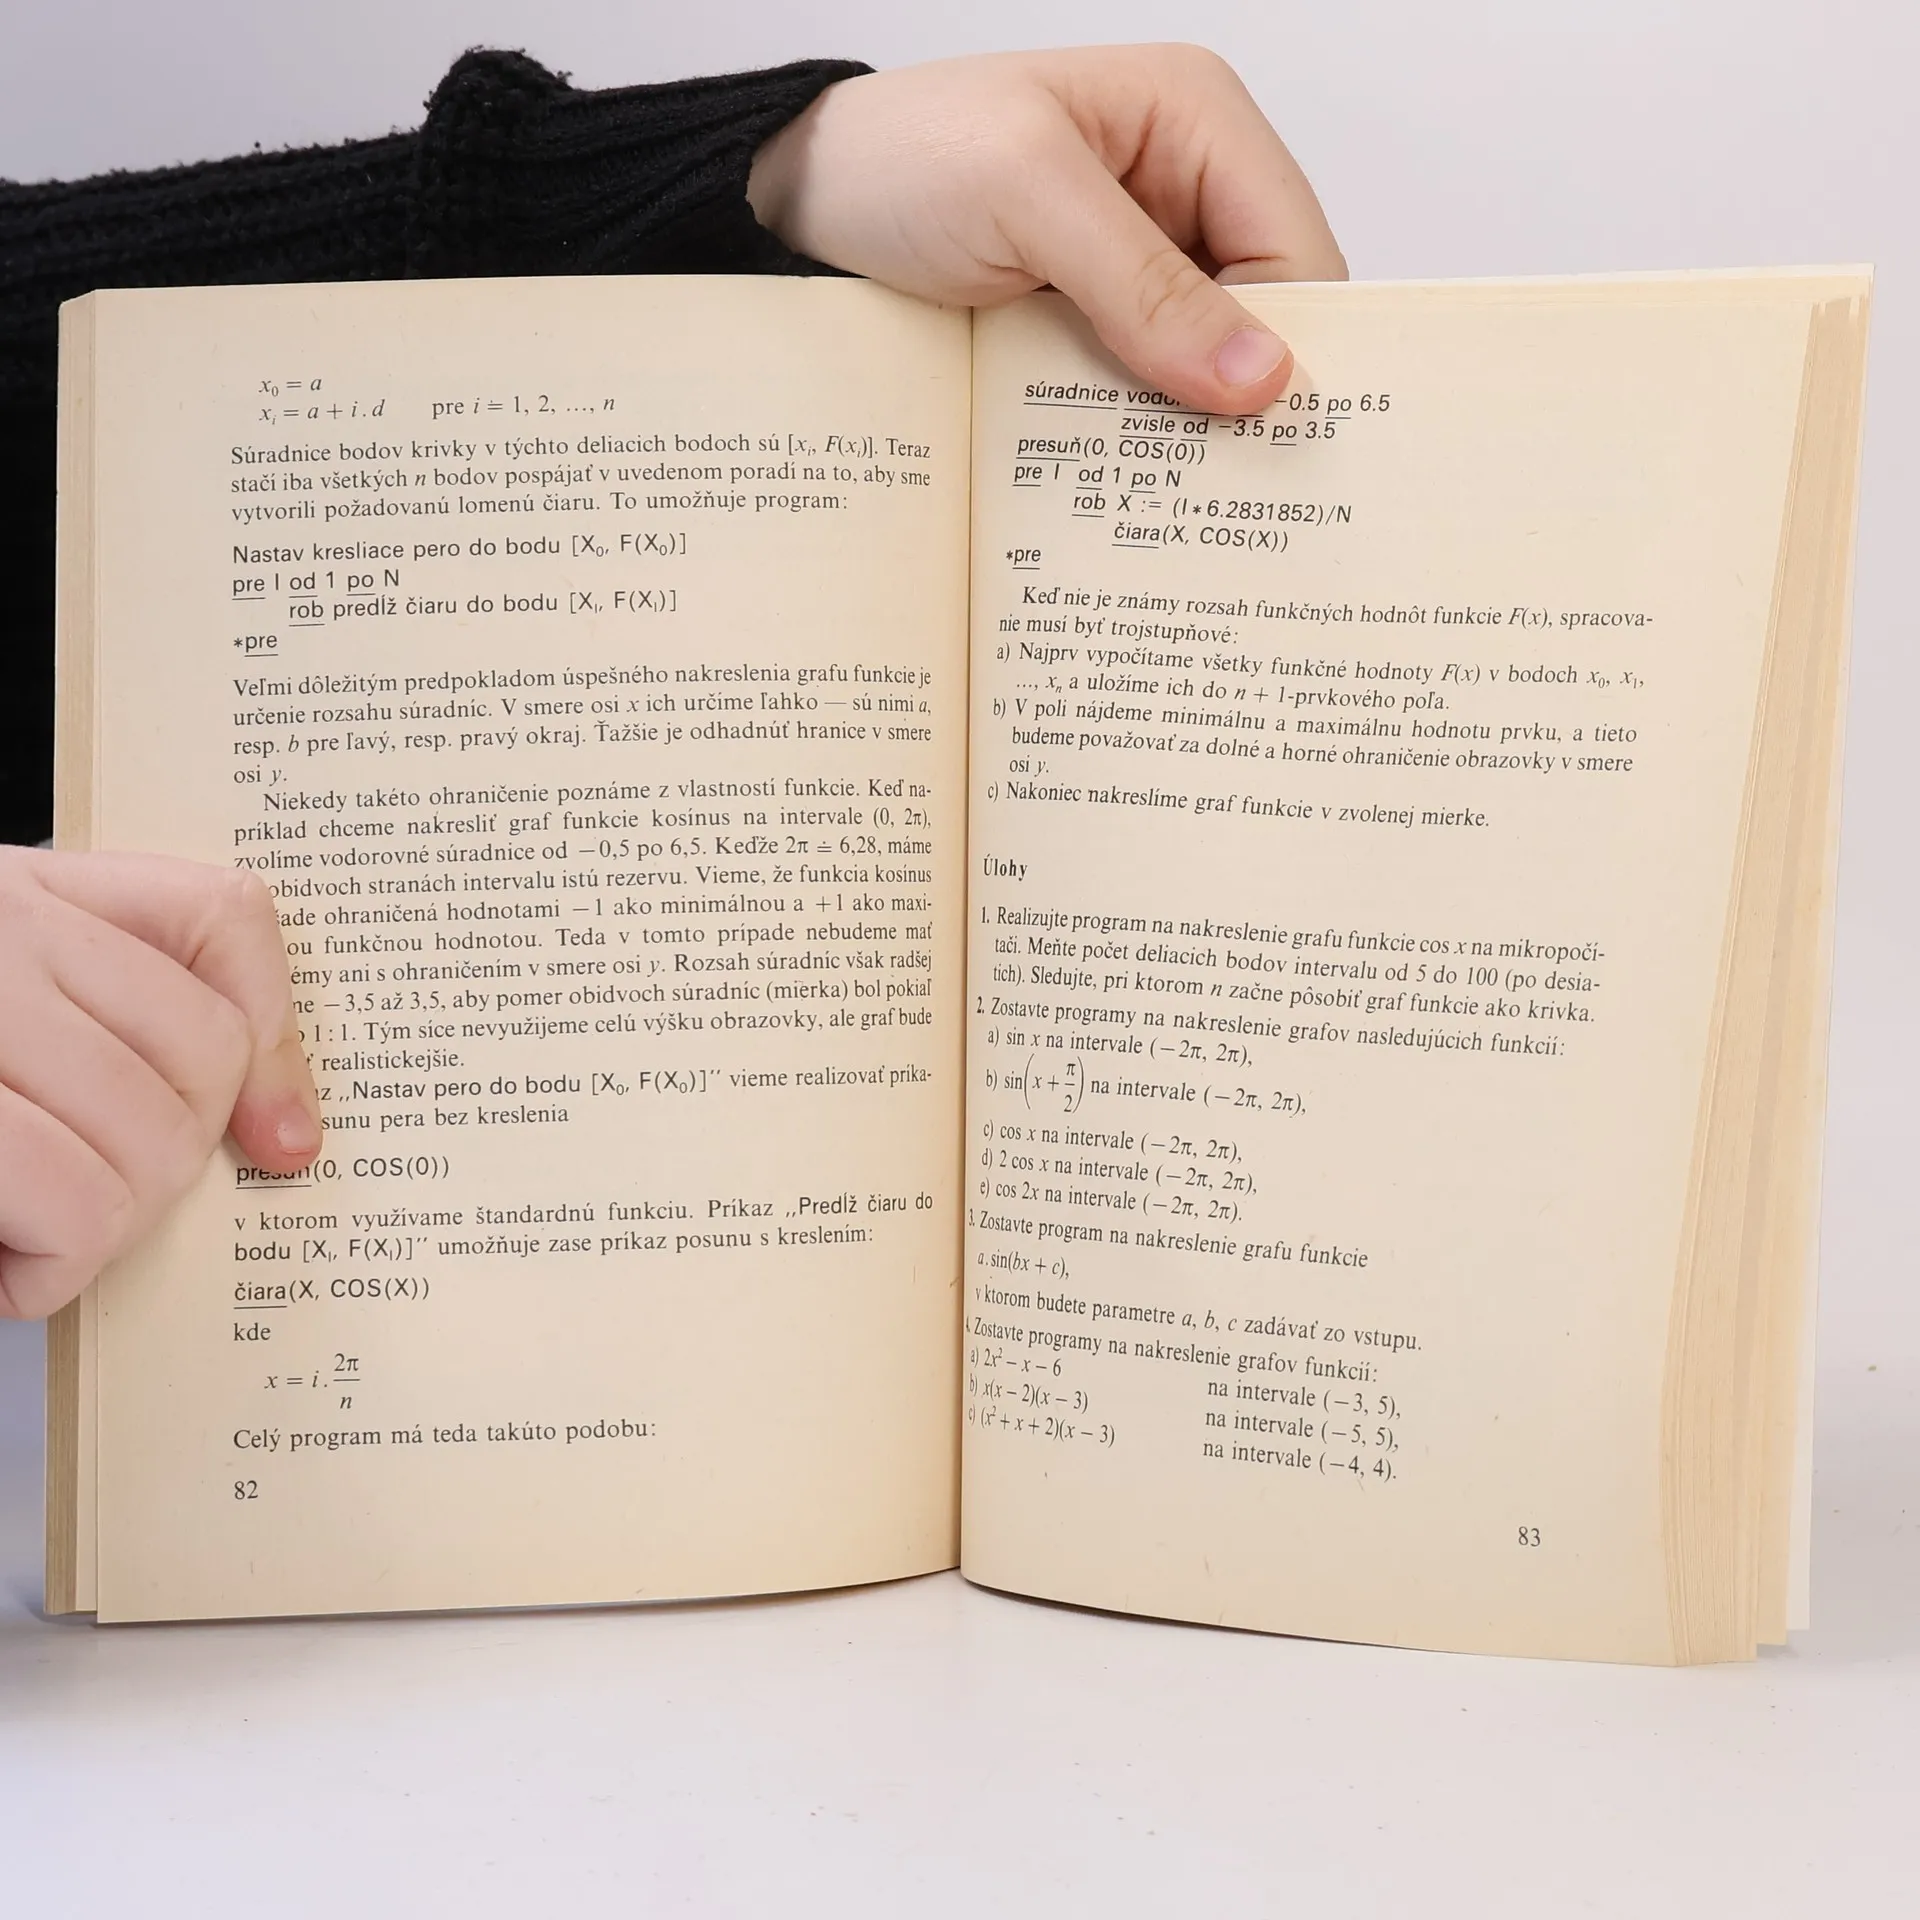 x₀ = a
xᵢ = a + i.d pre i = 1, 2, ..., n
Súradnice bodov krivky v týchto deliacich bodoch sú [xᵢ, F(xᵢ)]. Teraz
stačí iba všetkých n bodov pospájať v uvedenom poradí na to, aby sme
vytvorili požadovanú lomenú čiaru. To umožňuje program:
Nastav kresliace pero do bodu [X₀, F(X₀)]
pre I od 1 po N
rob predĺž čiaru do bodu [Xᵢ, F(Xᵢ)]
*pre
Veľmi dôležitým predpokladom úspešného nakreslenia grafu funkcie je
určenie rozsahu súradníc. V smere osi x ich určíme ľahko — sú nimi a,
resp. b pre ľavý, resp. pravý okraj. Ťažšie je odhadnúť hranice v smere
osi y.
Niekedy takéto ohraničenie poznáme z vlastností funkcie. Keď na-
príklad chceme nakresliť graf funkcie kosínus na intervale (0, 2π),
zvolíme vodorovné súradnice od −0,5 po 6,5. Keďže 2π ≐ 6,28, máme
obidvoch stranách intervalu istú rezervu. Vieme, že funkcia kosínus
ade ohraničená hodnotami −1 ako minimálnou a +1 ako maxi-
ou funkčnou hodnotou. Teda v tomto prípade nebudeme mať
émy ani s ohraničením v smere osi y. Rozsah súradníc však radšej
ne −3,5 až 3,5, aby pomer obidvoch súradníc (mierka) bol pokiaľ
1 : 1. Tým síce nevyužijeme celú výšku obrazovky, ale graf bude
realistickejšie.
az „Nastav pero do bodu [X₀, F(X₀)]" vieme realizovať príka-
sunu pera bez kreslenia
presuň(0, COS(0))
v ktorom využívame štandardnú funkciu. Príkaz „Predĺž čiaru do
bodu [Xᵢ, F(Xᵢ)]" umožňuje zase príkaz posunu s kreslením:
čiara(X, COS(X))
kde
x = i. 2π/n
Celý program má teda takúto podobu:
82
súradnice −0.5 po 6.5
zvisle od −3.5 po 3.5
presuň(0, COS(0))
pre I od 1 po N
rob X := (I*6.2831852)/N
čiara(X, COS(X))
*pre
Keď nie je známy rozsah funkčných hodnôt funkcie F(x), spracova-
nie musí byť trojstupňové:
a) Najprv vypočítame všetky funkčné hodnoty F(x) v bodoch x₀, x₁,
..., xₙ a uložíme ich do n + 1-prvkového poľa.
b) V poli nájdeme minimálnu a maximálnu hodnotu prvku, a tieto
budeme považovať za dolné a horné ohraničenie obrazovky v smere
osi y.
c) Nakoniec nakreslíme graf funkcie v zvolenej mierke.
Úlohy
1. Realizujte program na nakreslenie grafu funkcie cos x na mikropočí-
tači. Meňte počet deliacich bodov intervalu od 5 do 100 (po desia-
tich). Sledujte, pri ktorom n začne pôsobiť graf funkcie ako krivka.
2. Zostavte programy na nakreslenie grafov nasledujúcich funkcií:
a) sin x na intervale (−2π, 2π),
b) sin(x + π/2) na intervale (−2π, 2π),
c) cos x na intervale (−2π, 2π),
d) 2 cos x na intervale (−2π, 2π),
e) cos 2x na intervale (−2π, 2π).
3. Zostavte program na nakreslenie grafu funkcie
a.sin(bx + c),
v ktorom budete parametre a, b, c zadávať zo vstupu.
4. Zostavte programy na nakreslenie grafov funkcií:
a) 2x² − x − 6 na intervale (−3, 5),
b) x(x − 2)(x − 3) na intervale (−5, 5),
c) (x² + x + 2)(x − 3) na intervale (−4, 4).
83